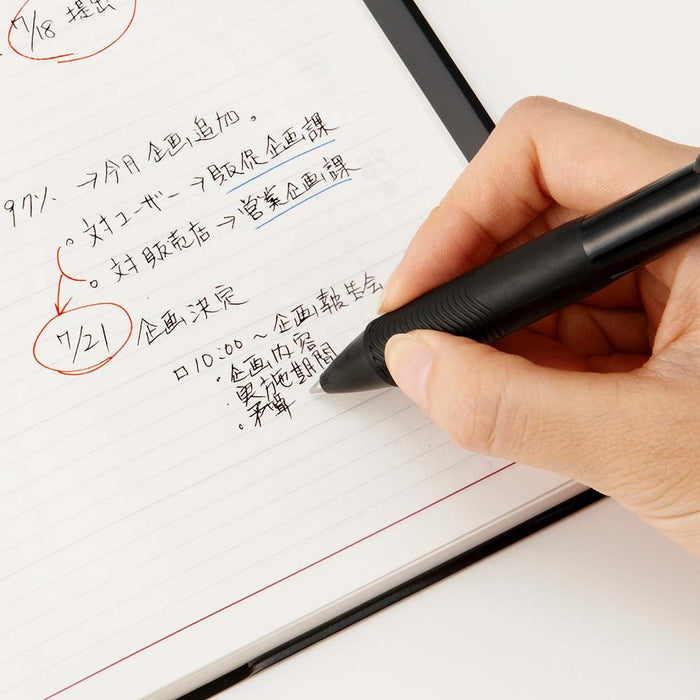 7/18 提出
97% →今月企画追加。
。対ユーザー→販促企画課
。対販売店→営業企画課
7/21 企画決定
□10:00～企画報告会
・企画内容
・実施期間